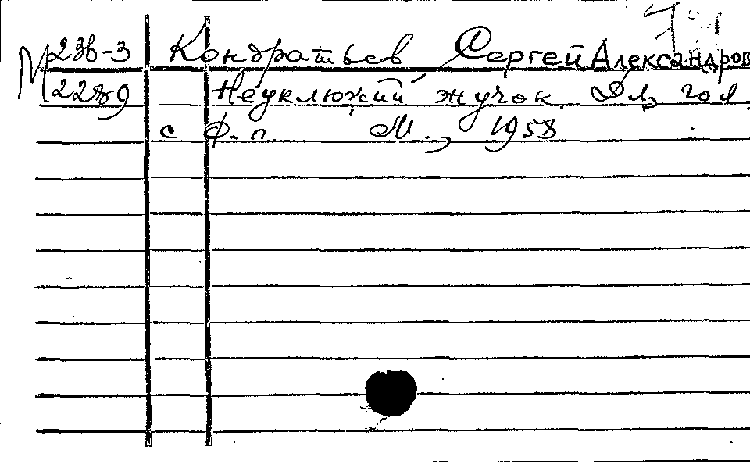 М 23в-3 Кондратьев Сергей Александров
2289 Неуклюжий жучок. Для гол.
с ф.п. М., 1958